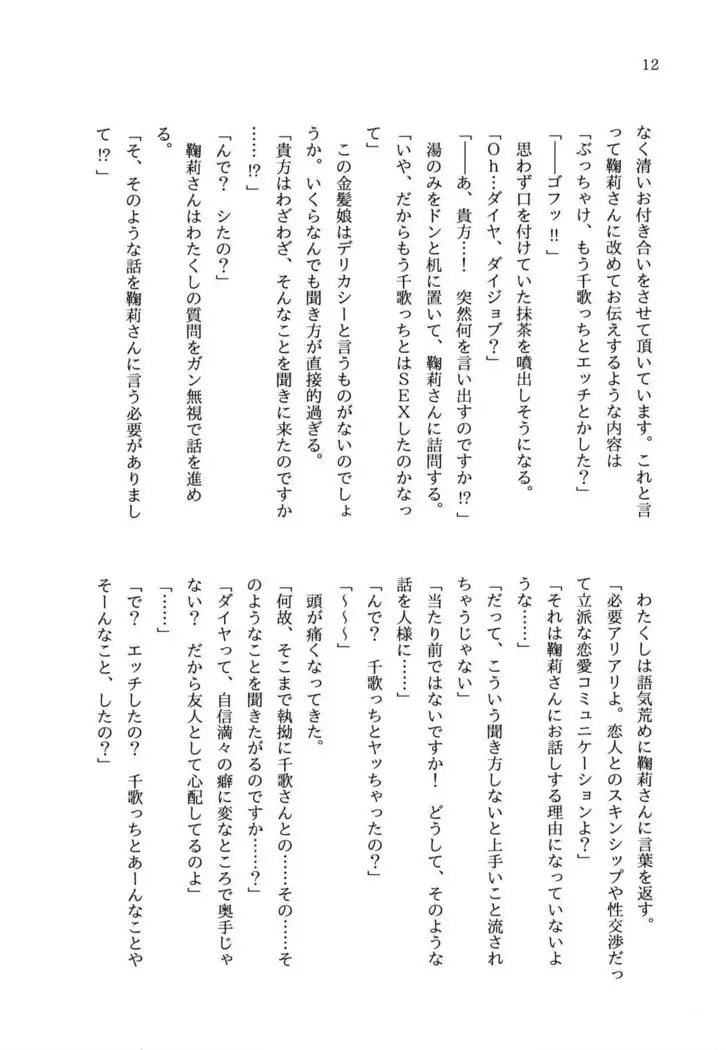 12
なく清いお付き合いをさせて頂いています。これと言
って鞠莉さんに改めてお伝えするような内容は
「ぶっちゃけ、もう千歌っちとエッチとかした？」
「――ゴフッ!!」
思わず口を付けていた抹茶を噴出しそうになる。
「Oh…ダイヤ、ダイジョブ？」
「――あ、貴方…！　突然何を言い出すのですか!?」
湯のみをドンと机に置いて、鞠莉さんに詰問する。
「いや、だからもう千歌っちとはＳＥＸしたのかなっ
て」
この金髪娘はデリカシーと言うものがないのでしょ
うか。いくらなんでも聞き方が直接的過ぎる。
「貴方はわざわざ、そんなことを聞きに来たのですか
……!?」
「んで？　シたの？」
鞠莉さんはわたくしの質問をガン無視で話を進め
る。
「そ、そのような話を鞠莉さんに言う必要がありまし
て!?」
わたくしは語気荒めに鞠莉さんに言葉を返す。
「必要アリアリよ。恋人とのスキンシップや性交渉だっ
て立派な恋愛コミュニケーションよ？」
「それは鞠莉さんにお話しする理由になっていないよ
うな……」
「だって、こういう聞き方しないと上手いこと流され
ちゃうじゃない」
「当たり前ではないですか！　どうして、そのような
話を人様に……」
「んで？　千歌っちとヤッちゃったの？」
「～～～」
頭が痛くなってきた。
「何故、そこまで執拗に千歌さんとの……その……そ
のようなことを聞きたがるのですか……？」
「ダイヤって、自信満々の癖に変なところで奥手じゃ
ない？　だから友人として心配してるのよ」
「……」
「で？　エッチしたの？　千歌っちとあーんなことや
そーんなこと、したの？」